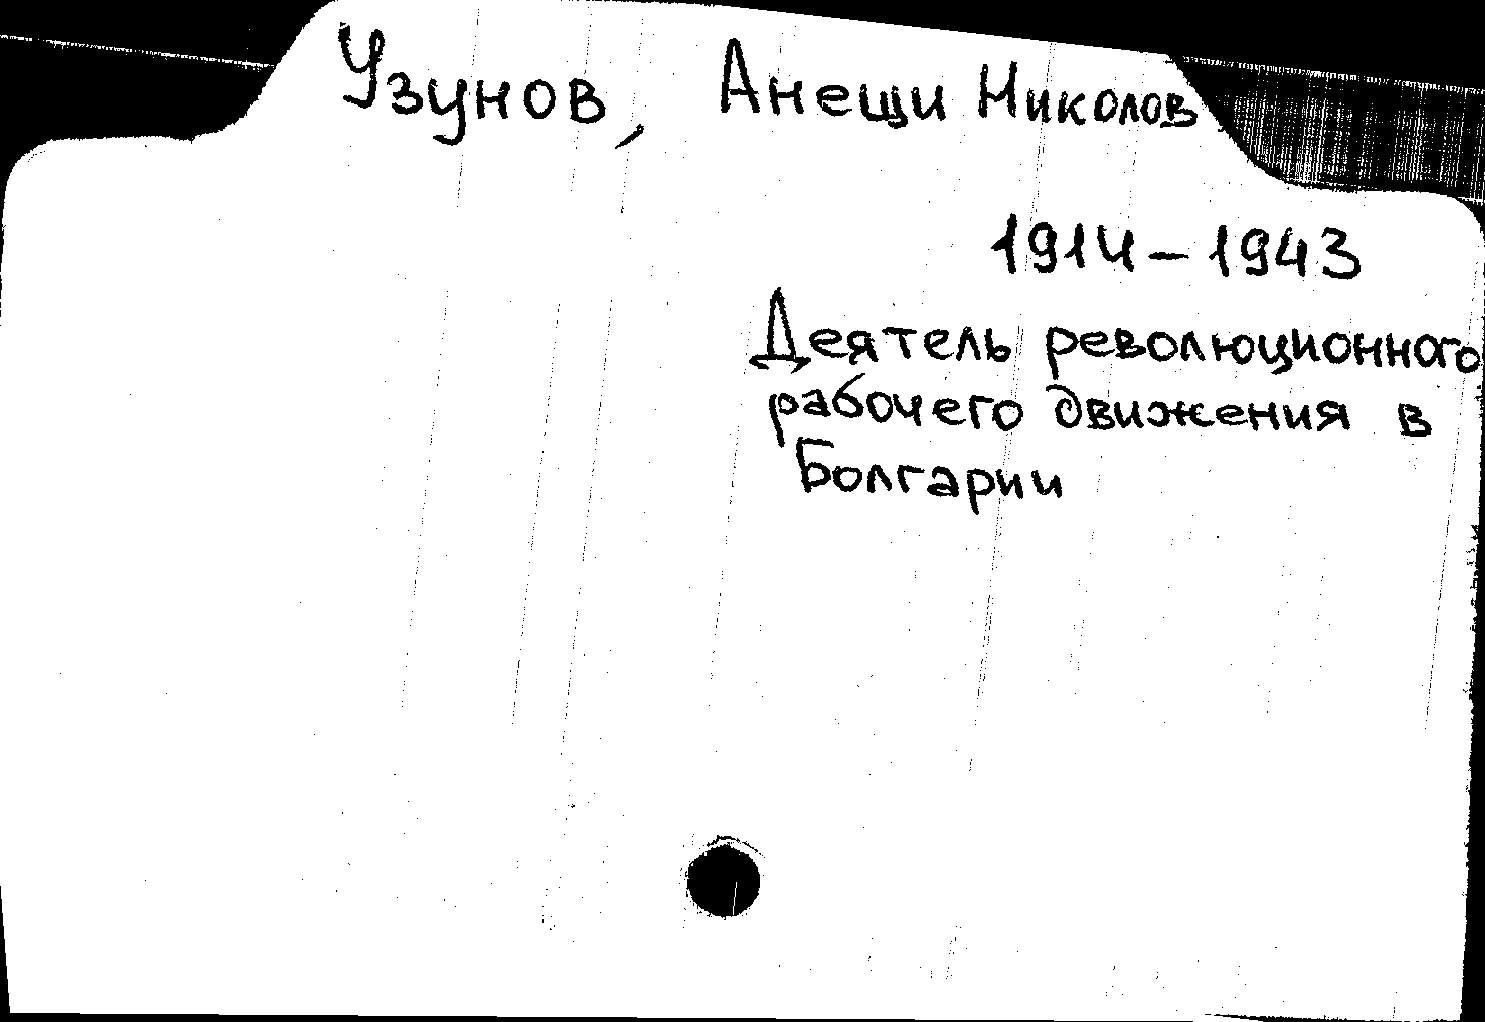 Узунов, Анещи Николов
1914-1943
Деятель революционного
рабочего движения в
Болгарии